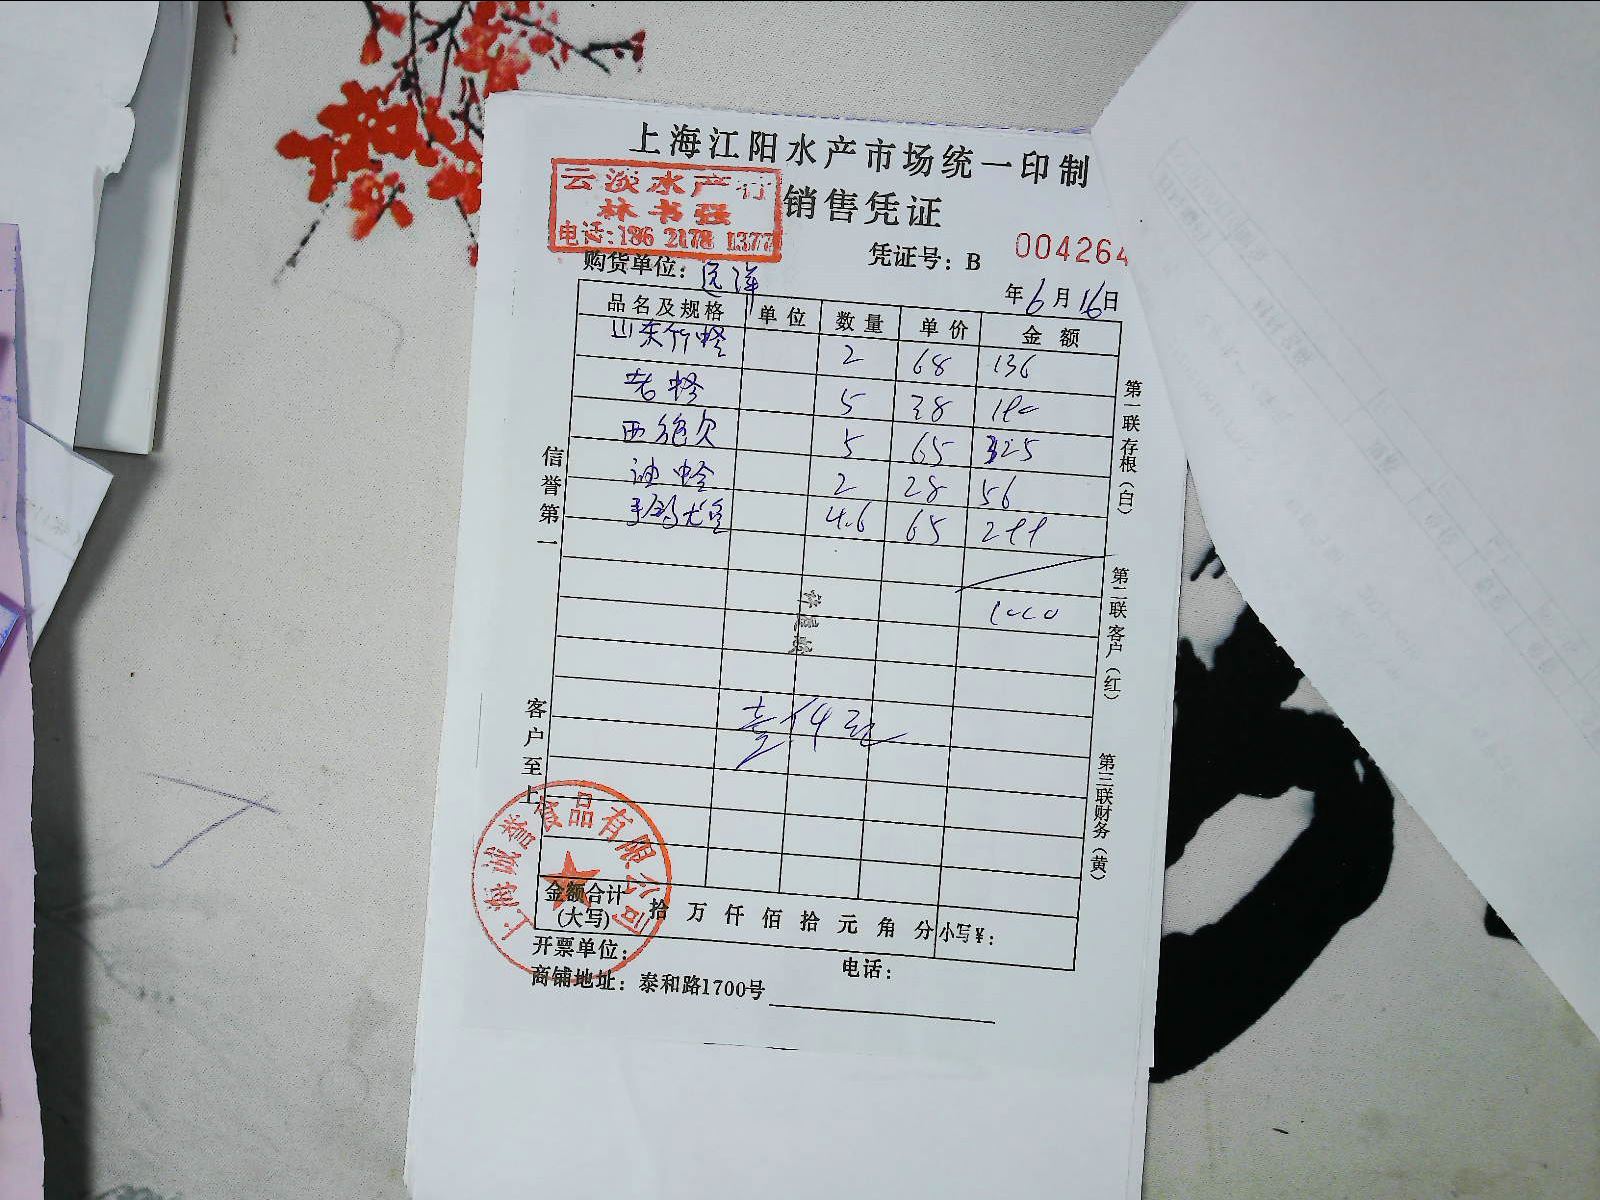 上海江阳水产市场统一印制
云淡水产行
林书强
电话:186 2178 1377
销售凭证
凭证号：B 004264
购货单位：远洋
年6月16日
品名及规格 单位 数量 单价 金额
山东竹蛏 2 68 136
老蛏 5 38 190
5 65 325
油蛤 2 28 56
4.6 65 299
1000
信誉第一
客户至上
第一联存根（白）
第二联客户（红）
第三联财务（黄）
上海诚誉食品有限公司
金额合计(大写) 拾万仟佰拾元角分 小写¥：
开票单位：
电话：
商铺地址：泰和路1700号